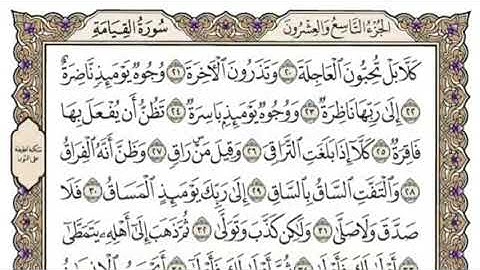 الجزء التاسع والعشرون
سورة القيامة
كَلَّا بَلْ تُحِبُّونَ ٱلْعَاجِلَةَ ٢٠ وَتَذَرُونَ ٱلْأٓخِرَةَ ٢١ وُجُوهٌ يَوْمَئِذٍ نَّاضِرَةٌ
٢٢ إِلَىٰ رَبِّهَا نَاظِرَةٌ ٢٣ وَوُجُوهٌ يَوْمَئِذٍۭ بَاسِرَةٌ ٢٤ تَظُنُّ أَن يُفْعَلَ بِهَا
فَاقِرَةٌ ٢٥ كَلَّآ إِذَا بَلَغَتِ ٱلتَّرَاقِىَ ٢٦ وَقِيلَ مَنْ رَاقٍ ٢٧ وَظَنَّ أَنَّهُ ٱلْفِرَاقُ
٢٨ وَٱلْتَفَّتِ ٱلسَّاقُ بِٱلسَّاقِ ٢٩ إِلَىٰ رَبِّكَ يَوْمَئِذٍ ٱلْمَسَاقُ ٣٠ فَلَا
صَدَّقَ وَلَا صَلَّىٰ ٣١ وَلَٰكِن كَذَّبَ وَتَوَلَّىٰ ٣٢ ثُمَّ ذَهَبَ إِلَىٰٓ أَهْلِهِۦ يَتَمَطَّىٰٓ